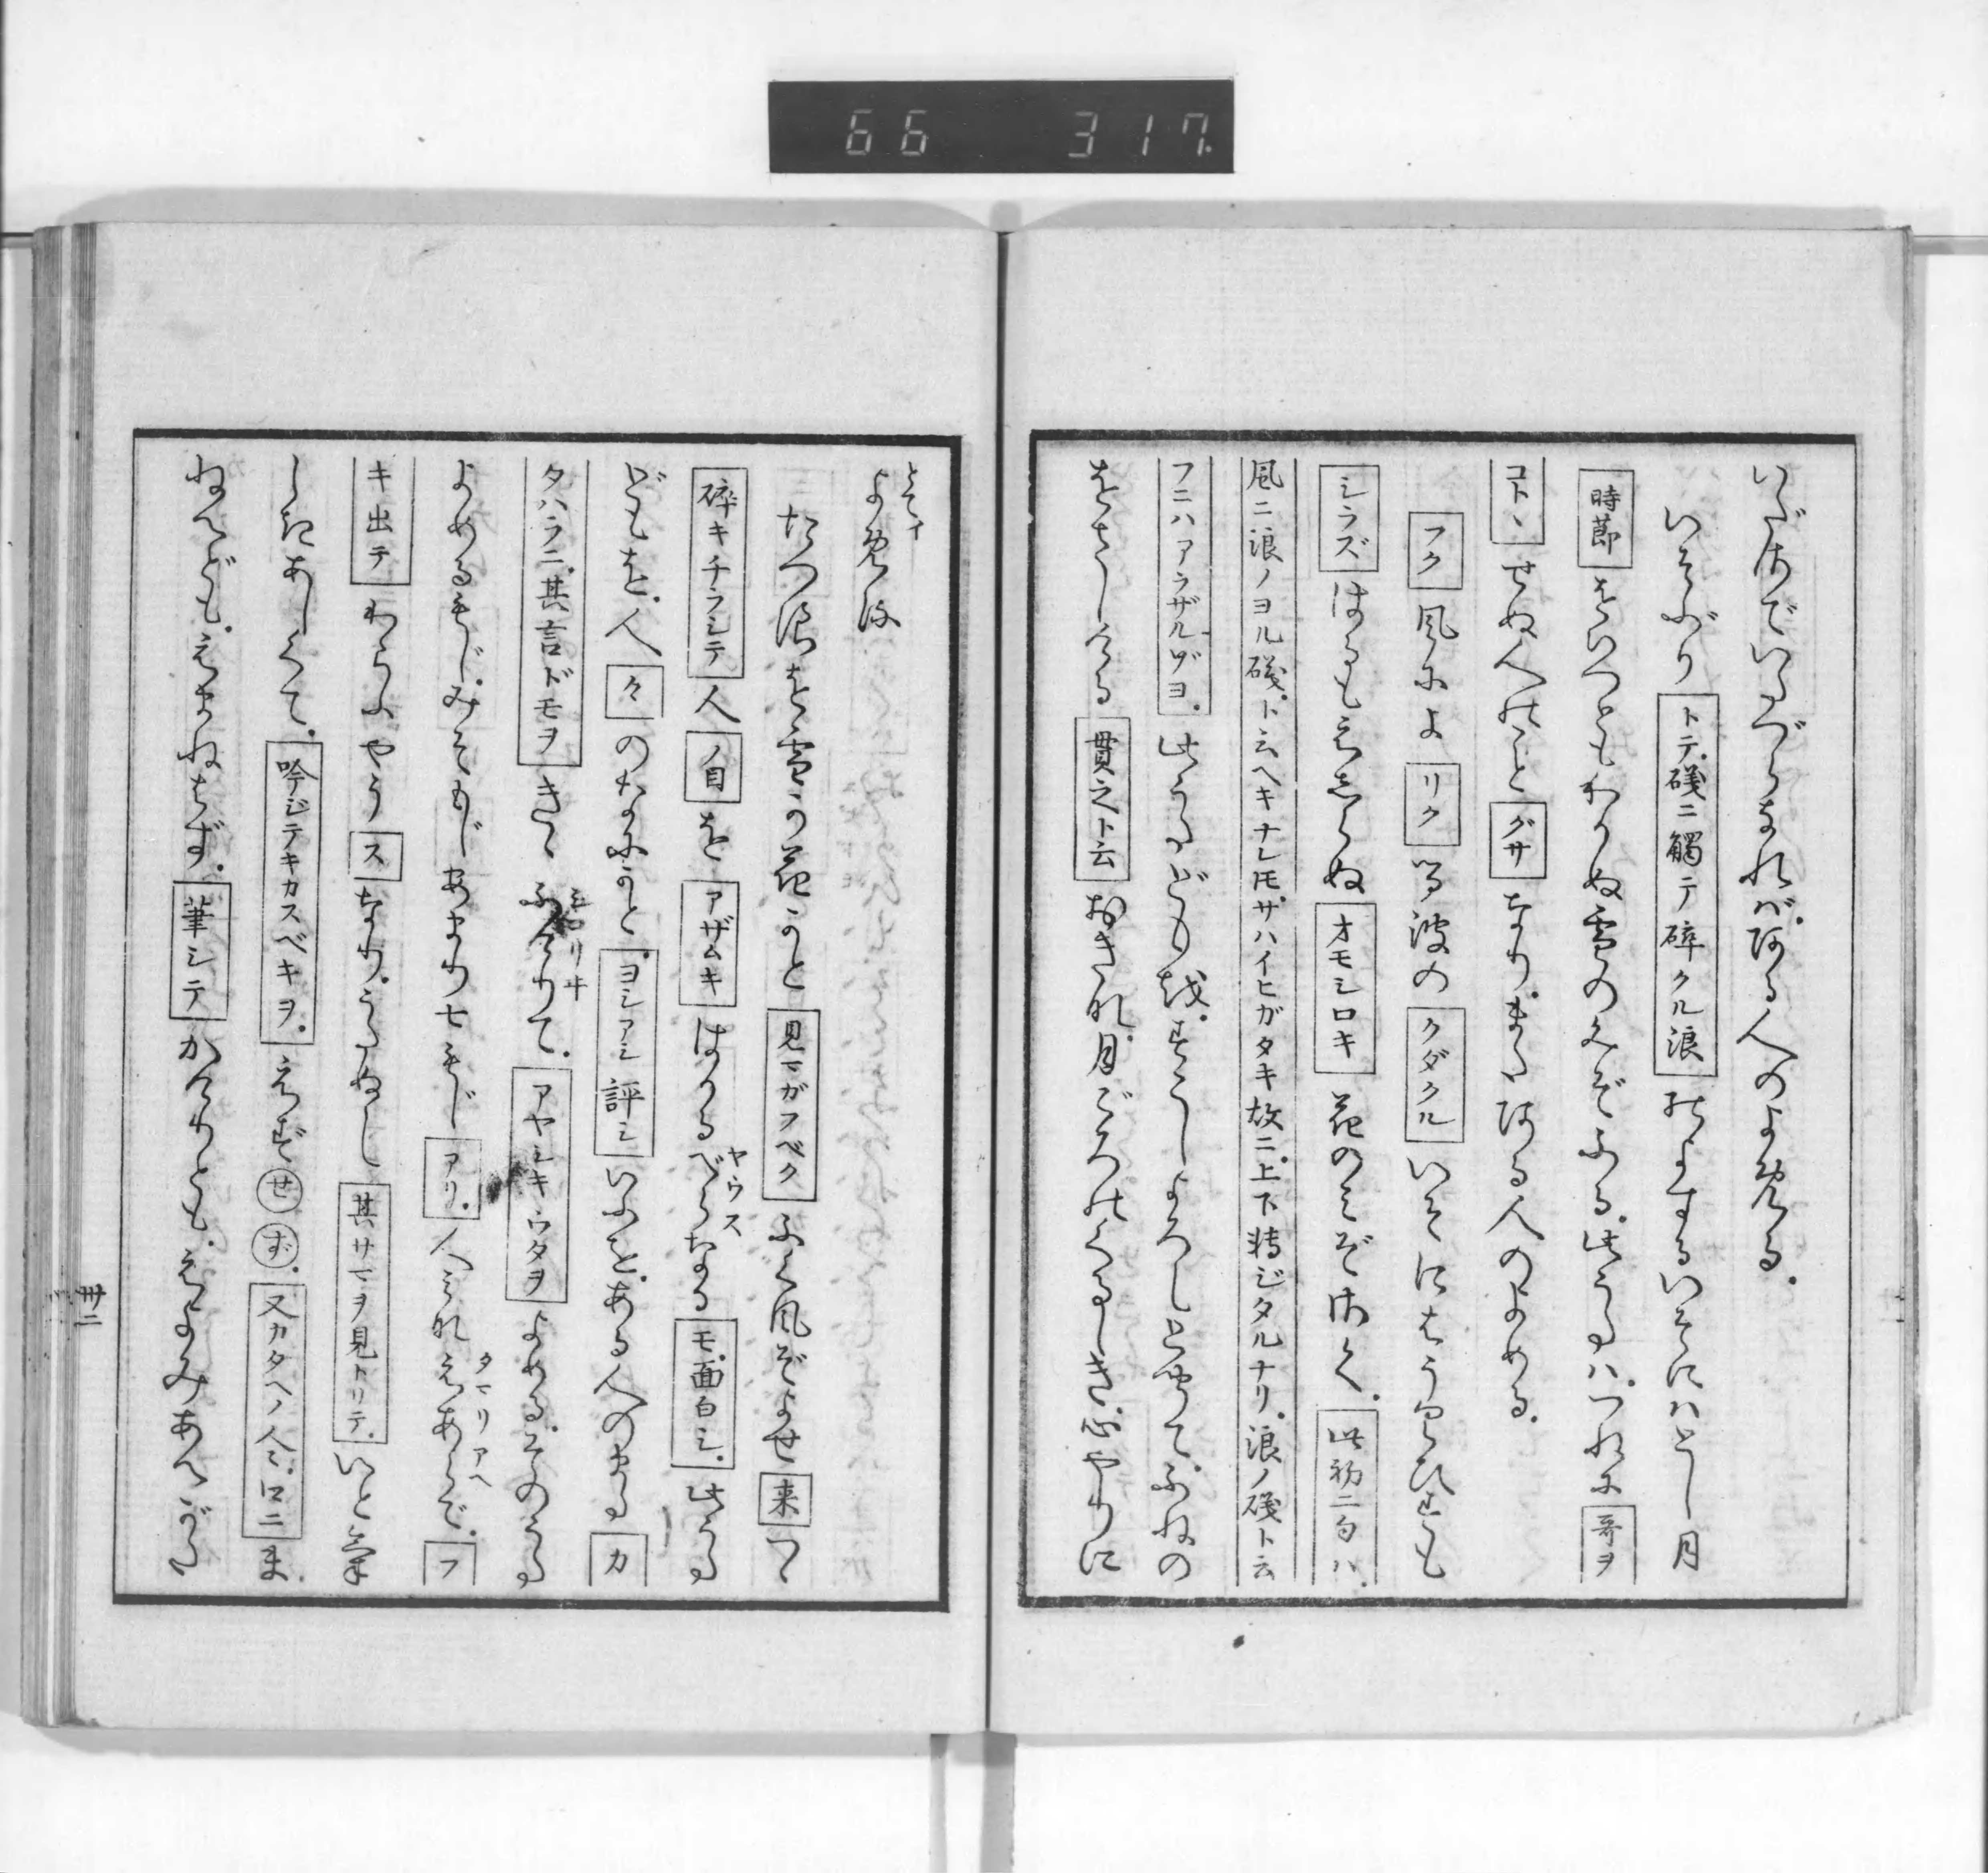 66 317.
いだ さで いぬべらなれば、ある人のよめる。
いそぶり トテ、磯ニ觸テ碎クル浪 のよするいそにハとし月
時節 をいつともわかぬ雪のみぞふる。此うたハ、つねに 哥ヲ
コトヽ せぬ人のこと グサ なり。またある人のよめる。
フク 風によ リク る波の クダクル いそにはうぐひすも
シラズ はるもえしらぬ オモシロキ 花のみぞさく。 此初二句ハ、
風ニ浪ノヨル磯、ト云ヘキナレ𪜈、サハイヒガタキ故ニ、上下轉ジタルナリ。浪ノ磯ト云
フニハアラザルゾヨ。 此うたども越、すこしよろしときゝて、ふねの
をさしける 貫之ト云 おきな、月ごろのくるしき心やりに
とてイ
よめる
たつ浪を雪か花かと 見マガフベク ふく風ぞよせ 来 つゝ
碎キチラシテ 人 ノ目 を アザムキ はかるべらなる モ、面白シ。 此うた
ヤウス
どもを、人 々 のなにかと ヨシアシ評シ いふを、ある人のまた カ
タハラニ、其言ドモヲ きゝふけりて、 アヤシキウタヲ よめる。そのうた
よめるもじ、みそもじあまり七もじ アリ。 人みなえあらで、 フ
タマリアヘ
キ出テ わらふやう ス なり。うたぬし 其サマヲ見トリテ、 いと氣
しきあしくて、 吟ジテキカスベキヲ、 えず せ ず。 又カタヘノ人ミ、口ニ ま
ねべども、えまねばず。 筆シテ かけりとも、えよみあへがた
卅二